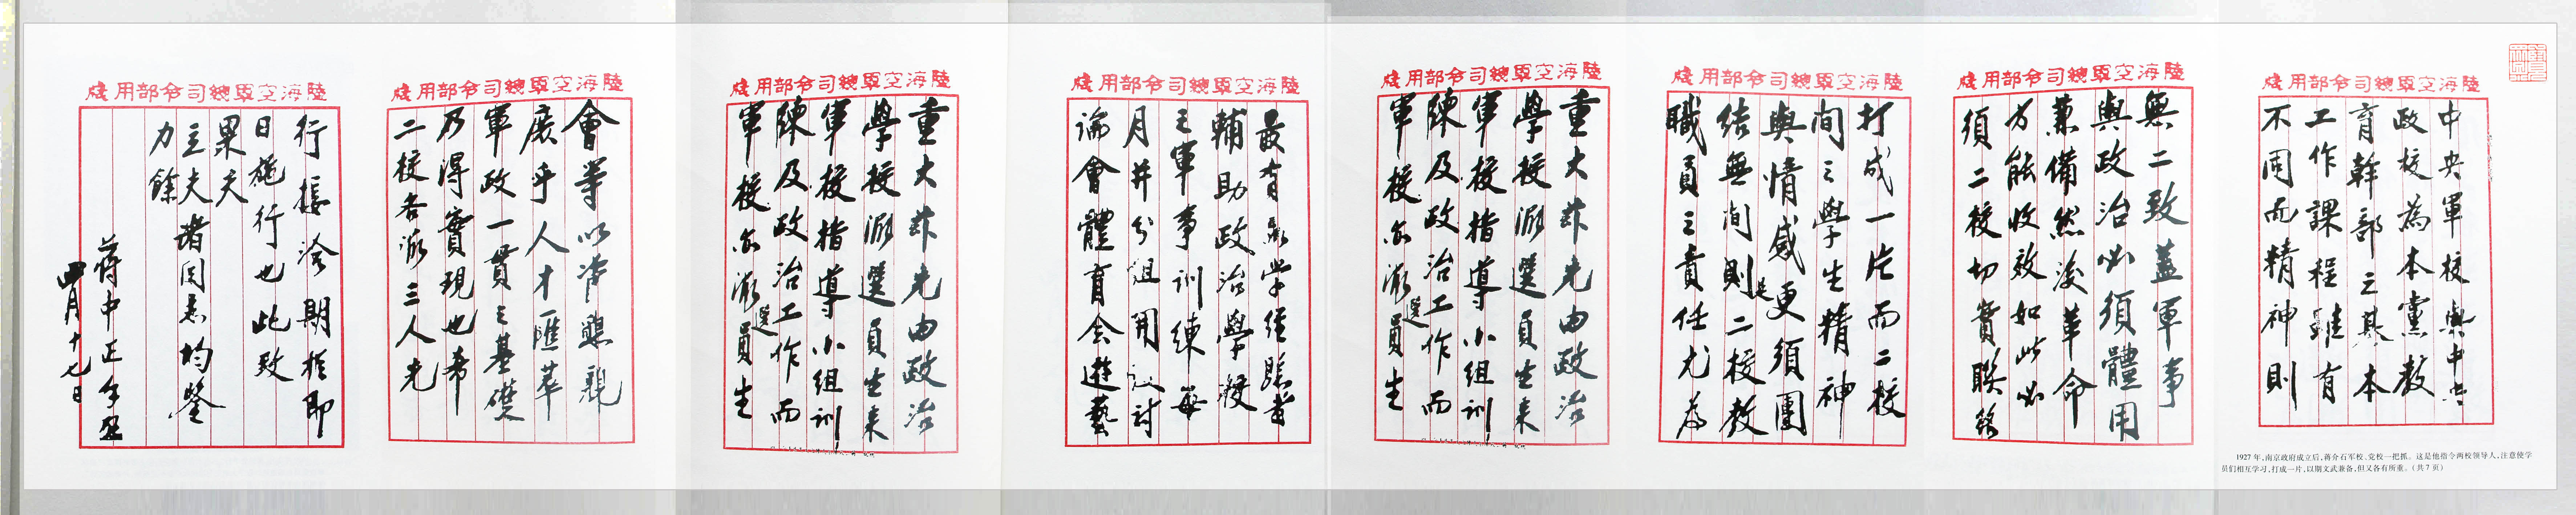 陸海空軍總司令部用牋
中央軍校與中央
政校為本黨教
育幹部之基本
工作課程雖有
不同而精神則
1927年,南京政府成立后,蒋介石军校、党校一把抓。这是他指令两校领导人,注意使学
员们相互学习,打成一片,以期文武兼备,但又各有所重。(共7页)
陸海空軍總司令部用牋
無二致蓋軍事
與政治必須體用
兼備然後革命
方能收效如此必
須二校切實聯絡
陸海空軍總司令部用牋
打成一片而二校
間之學生精神
與情感更須團
結無間則是二校教
職員之責任尤為
陸海空軍總司令部用牋
重大茲先由政治
學校派選員生來
軍校指導小組訓
練及政治工作而
軍校亦派選員生
陸海空軍總司令部用牋
最有學經驗者
輔助政治學校
之軍事訓練每
月并分組開討
論會體育会遊藝
陸海空軍總司令部用牋
重大茲先由政治
學校派選員生來
軍校指導小組訓
練及政治工作而
軍校亦派選員生
陸海空軍總司令部用牋
會等以資懇親
展乎人才匯萃
軍政一貫之基礎
乃得實現也希
二校各派三人先
陸海空軍總司令部用牋
行接洽期於即
日施行也此致
果夫
立夫諸同志均鑒
力餘
蔣中正手啓
四月十七日